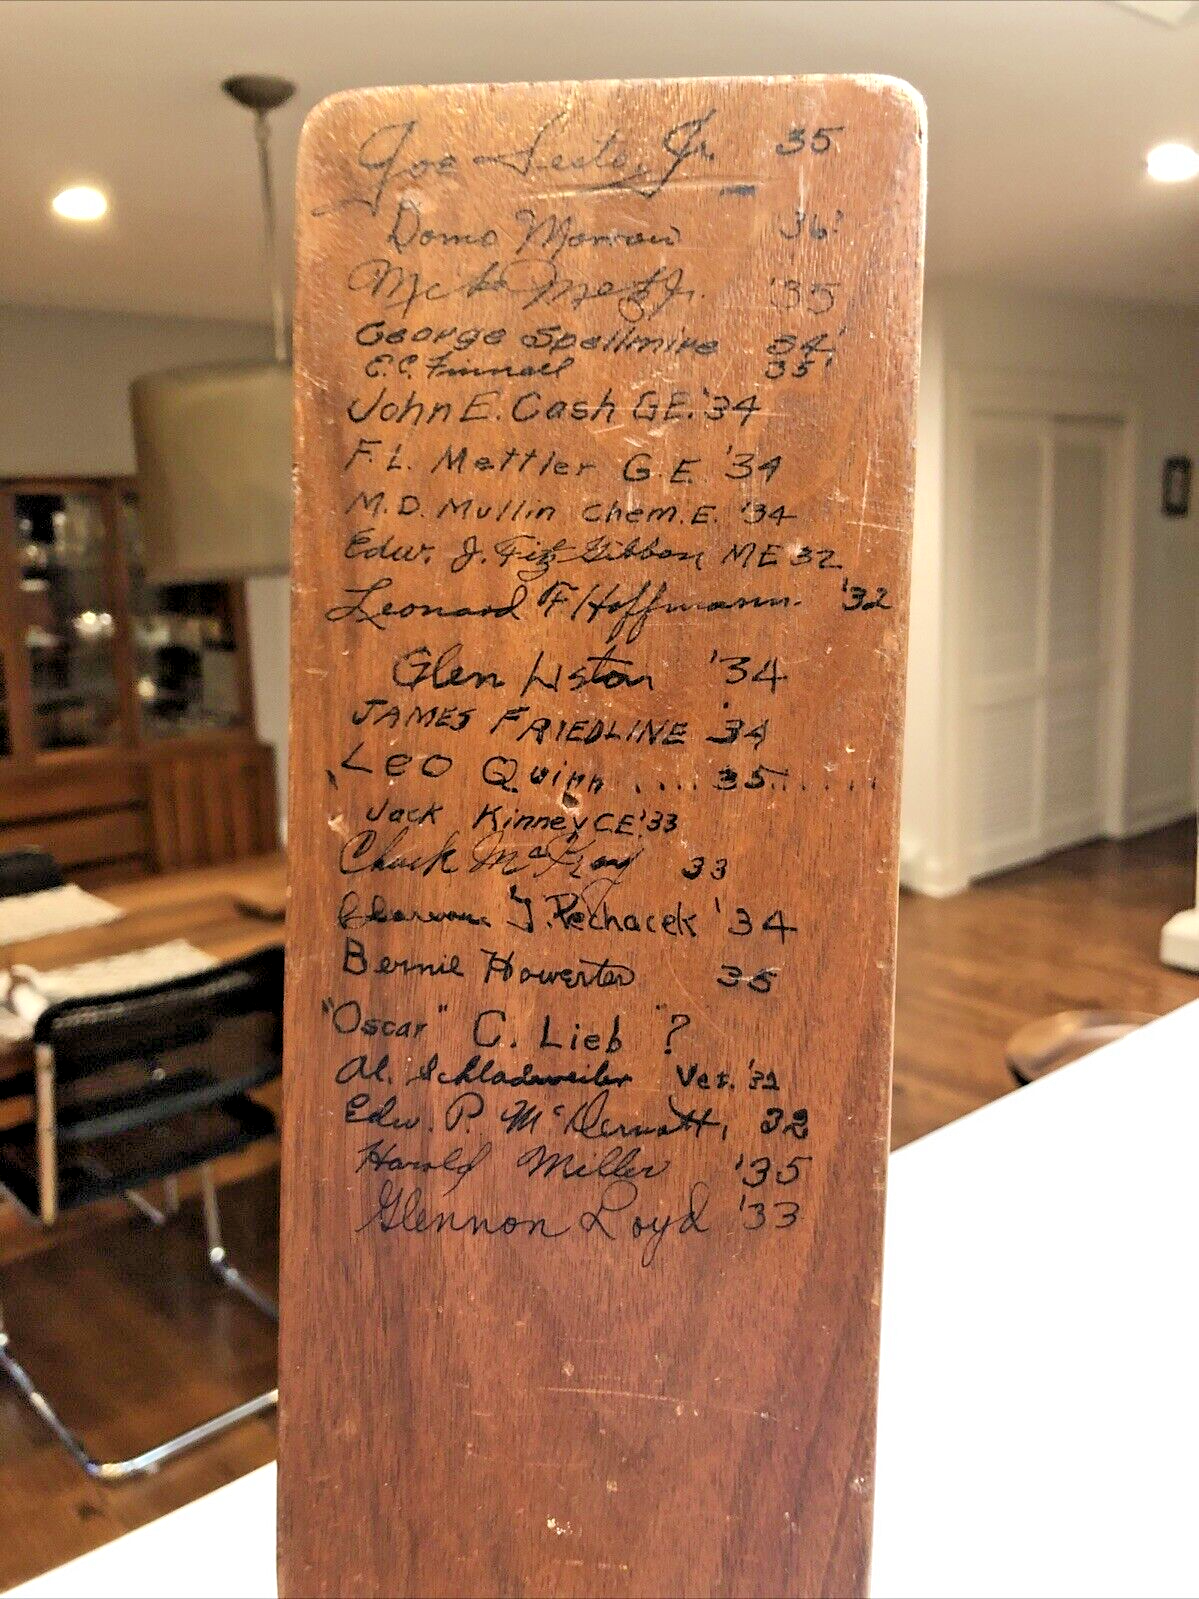 Joe Jr. 35
Domo Morrow 36'
Mike Metz Jr. '35
George Spellmire 34'
E.C. Finnall 35'
John E. Cash G.E. '34
F.L. Mettler G.E. '34
M.D. Mullin Chem.E. '34
Edw. J. Fitz Gibbon ME 32
Leonard F. Hoffmann. '32
Glen Liston '34
JAMES FRIEDLINE '34
LEO Quinn .... 35......
Jack Kinney CE '33
Chuck 33
J. Pechacek '34
Bernie Howerter 35
"Oscar" C. Lieb ?
Al. Schladweiler Vet. '32
Edw. P. McDermott, 32
Harold Miller '35
Glennon Loyd '33